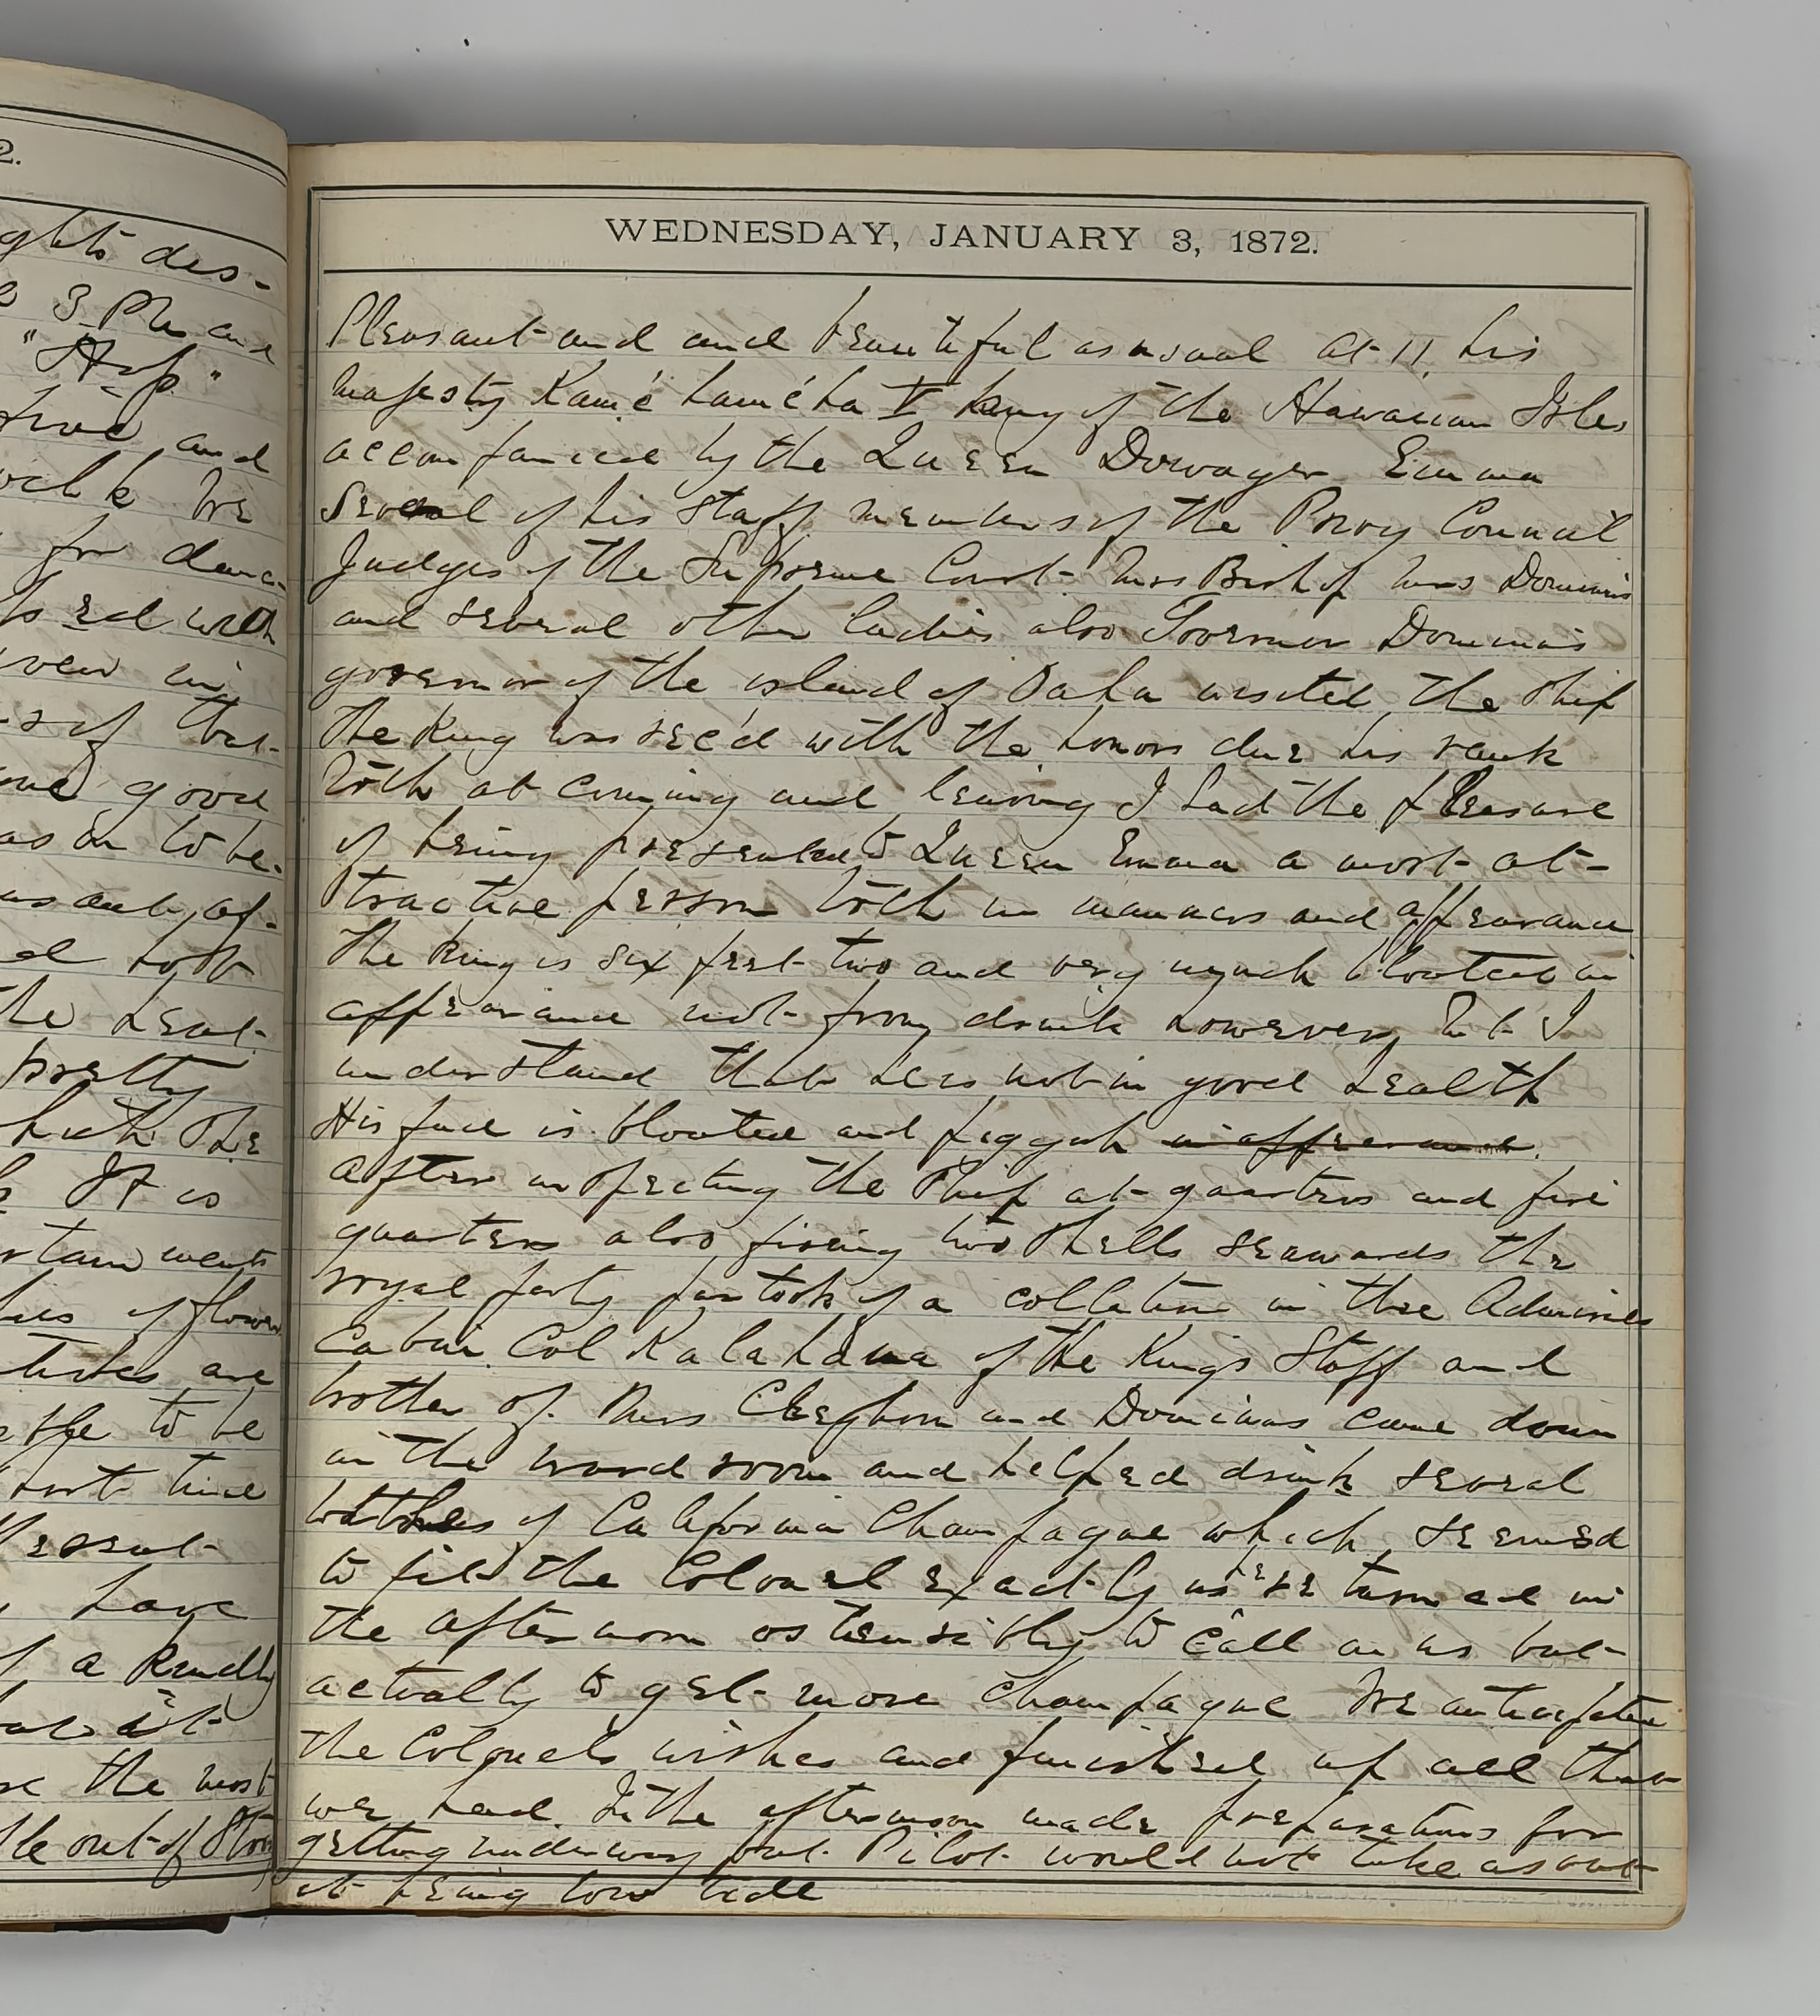 2.
ghts des-
3 PM and
"Hop"
and
We
for danc-
ed with
good
as on to be-
the heat-
pretty
It is
went
of flower
are
to be
time
have
of a kindly
the most
out of
WEDNESDAY, JANUARY 3, 1872.
Pleasant and and beautiful as usual At 11, his
majesty Kamé haméha V King of the Hawaiian Isles
accompanied by the Queen Dowager Emma
Several of his Staff members of the Privy Council
Judges of the Supreme Court- Mrs Bishop Mrs Dominis
and several other ladies also Governor Dominis
governor of the island of Oahu visited the Ship
The King was rec'd with the honors due his rank
both at coming and leaving I had the pleasure
of being presented to Queen Emma a most at-
tractive person both in manners and appearance
The King is six feet two and very much bloated in
appearance not from drink however, but I
understand that he is not in good health
His face is bloated and piggish in appearance.
After inspecting the Ship at quarters and fire
quarters also, firing two Shells seawards the
royal party partook of a collation in the Admirals
Cabin. Col Kalahaua of the Kings Staff and
brother of. Mrs Cleghorn and Dominis came down
in the ward room and helped drink several
bottles of California Champagne which seemed
to fit the Colonel exactly as he returned in
the afternoon ostensibly to call on us but
actually to get more champagne We anticipated
the Colonels wishes and finished up all that
we had. In the afternoon made preparations for
getting underway but Pilot would not take us out
it being low tide